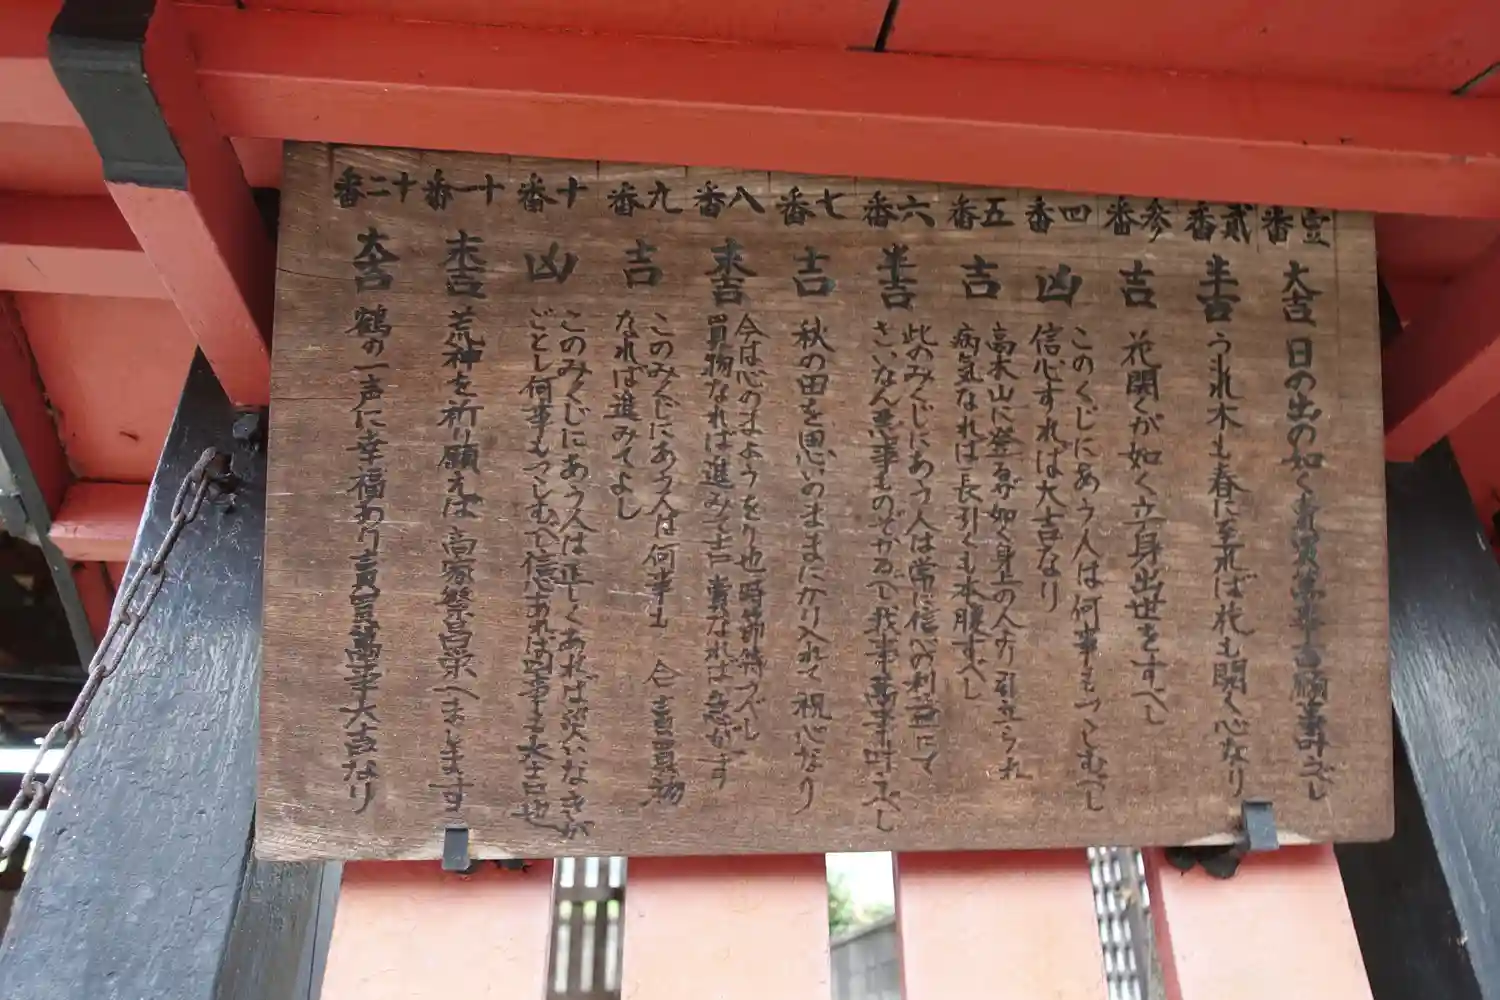 壹番 大吉 日の出の如く 売買萬事吉 願事叶ふべし
貳番 半吉 うれ木も春に至れば花も開く心なり
参番 吉 花開くが如く立身出世をすべし
四番 凶 このくじにあう人は何事もつゝしむべし
信心すれば大吉なり
五番 吉 高木山に登るが如く身上の人より引立られ
病気なれば長引くも本腹すべし
六番 半吉 此のみくじにあう人は常に信心の利益にて
さいなん悪事ものぞかるべし我事萬事叶ふべし
七番 吉 秋の田を思いのままにかり入れて祝心なり
八番 末吉 今は心のまようをり也時節待つべし
買物なれば進みて吉 賣なれば急がず
九番 吉 このみくじにあう人は何事も 合 吉 買物
なれば進みてよし
十番 凶 このみくじにあう人は正しくあれば災いなきが
ごとし何事もつゝしむべし信心あれば凶事も大吉也
十一番 末吉 荒神を祈り願えば 高家繁昌栄へまします
十二番 大吉 鶴の一声に幸福あり 賣買萬事大吉なり